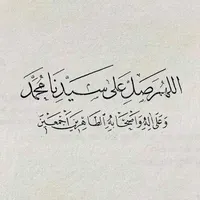 اللهم صل على سيدنا محمد
وعلى آله وأصحابه الطاهرين أجمعين